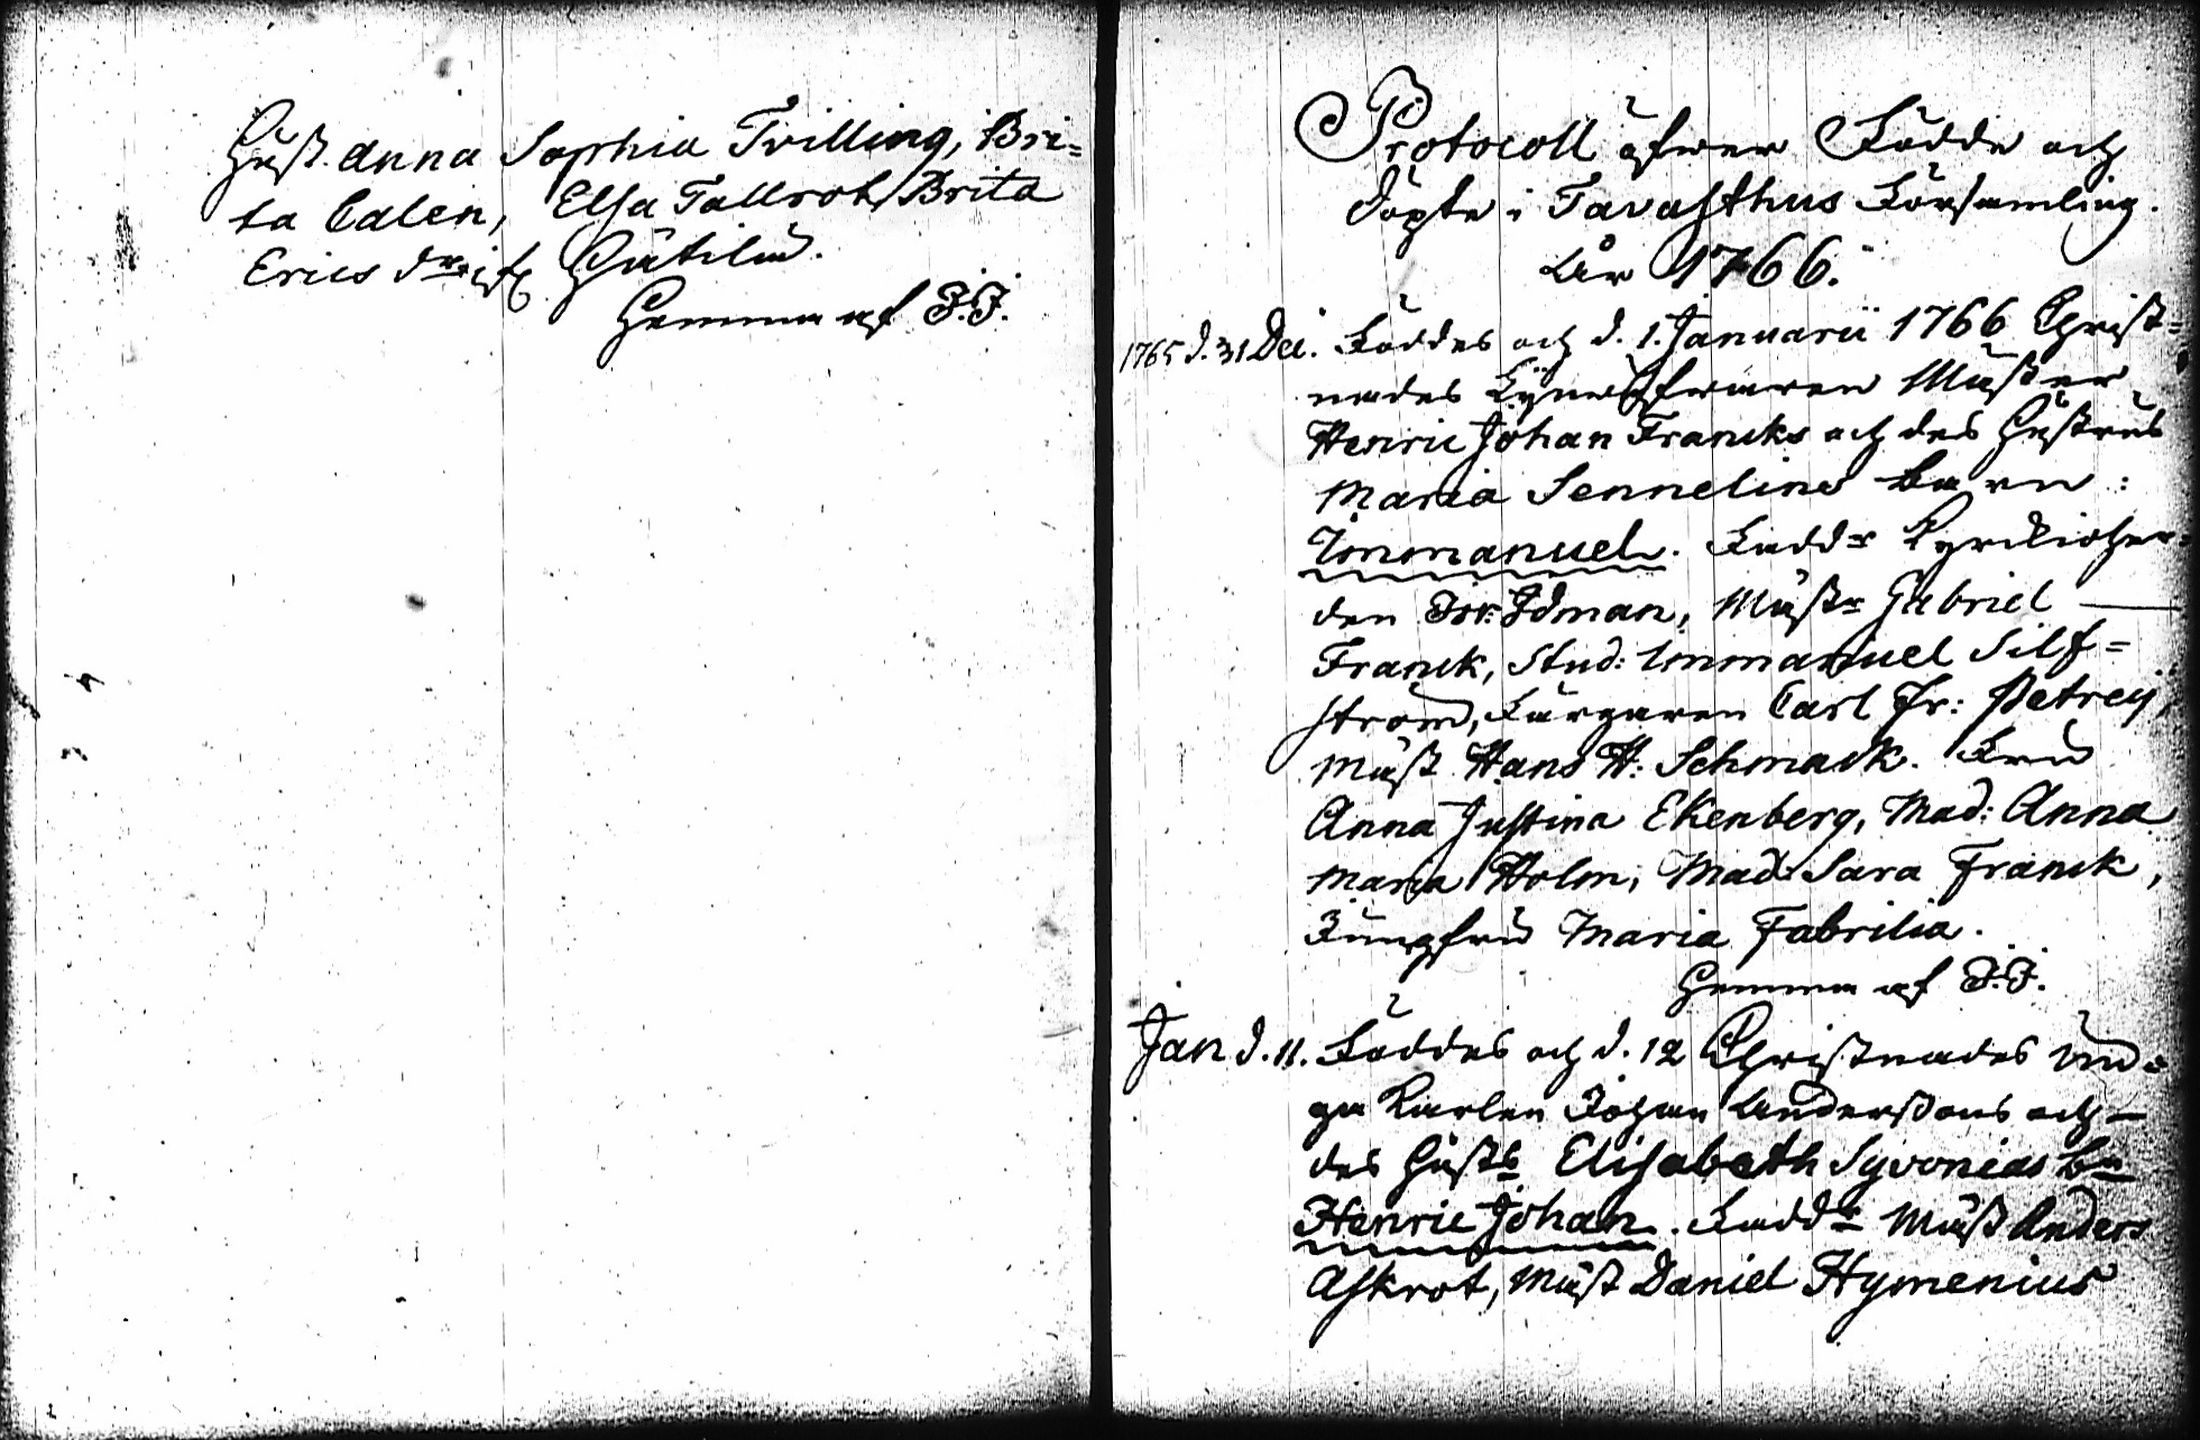 Hust. Anna Sophia Trilling, Bri=
ta Calen, Elsa Tallroth, Brita
Erics dr ifr. Hätilä.
Hemma af J.J.
Protocoll öfwer Födde och
döpte i Tavasthus Församling.
Åhr 1766.
1765 d. 31 Dec. Föddes och d. 1. Januarii 1766 Christ=
nades Mästar
Henric Johan Francks och des Hustrus
Maria Sennelius barn:
Immanuel. Fadd:r Kyrckioher=
den Idman, Mäst:r Gabriel
Franck, Stud: Immanuel Silf=
ström, Färgaren Carl Fr: Petrej,
Mäst Hans H: Schmack. Fru
Anna Justina Ekenberg, Mad: Anna
Maria Holm, Mad: Sara Franck,
Jungfru Maria Fabrilia.
Hemma af J.J.
Jan d. 11. Föddes och d. 12 Christnades un=
ga Karlen Johan Anderssons och
des Husts Elisabeth Syvonias bn
Henric Johan. Fadd:r Mäst Anders
Askrot, Mäst Daniel Hymenius